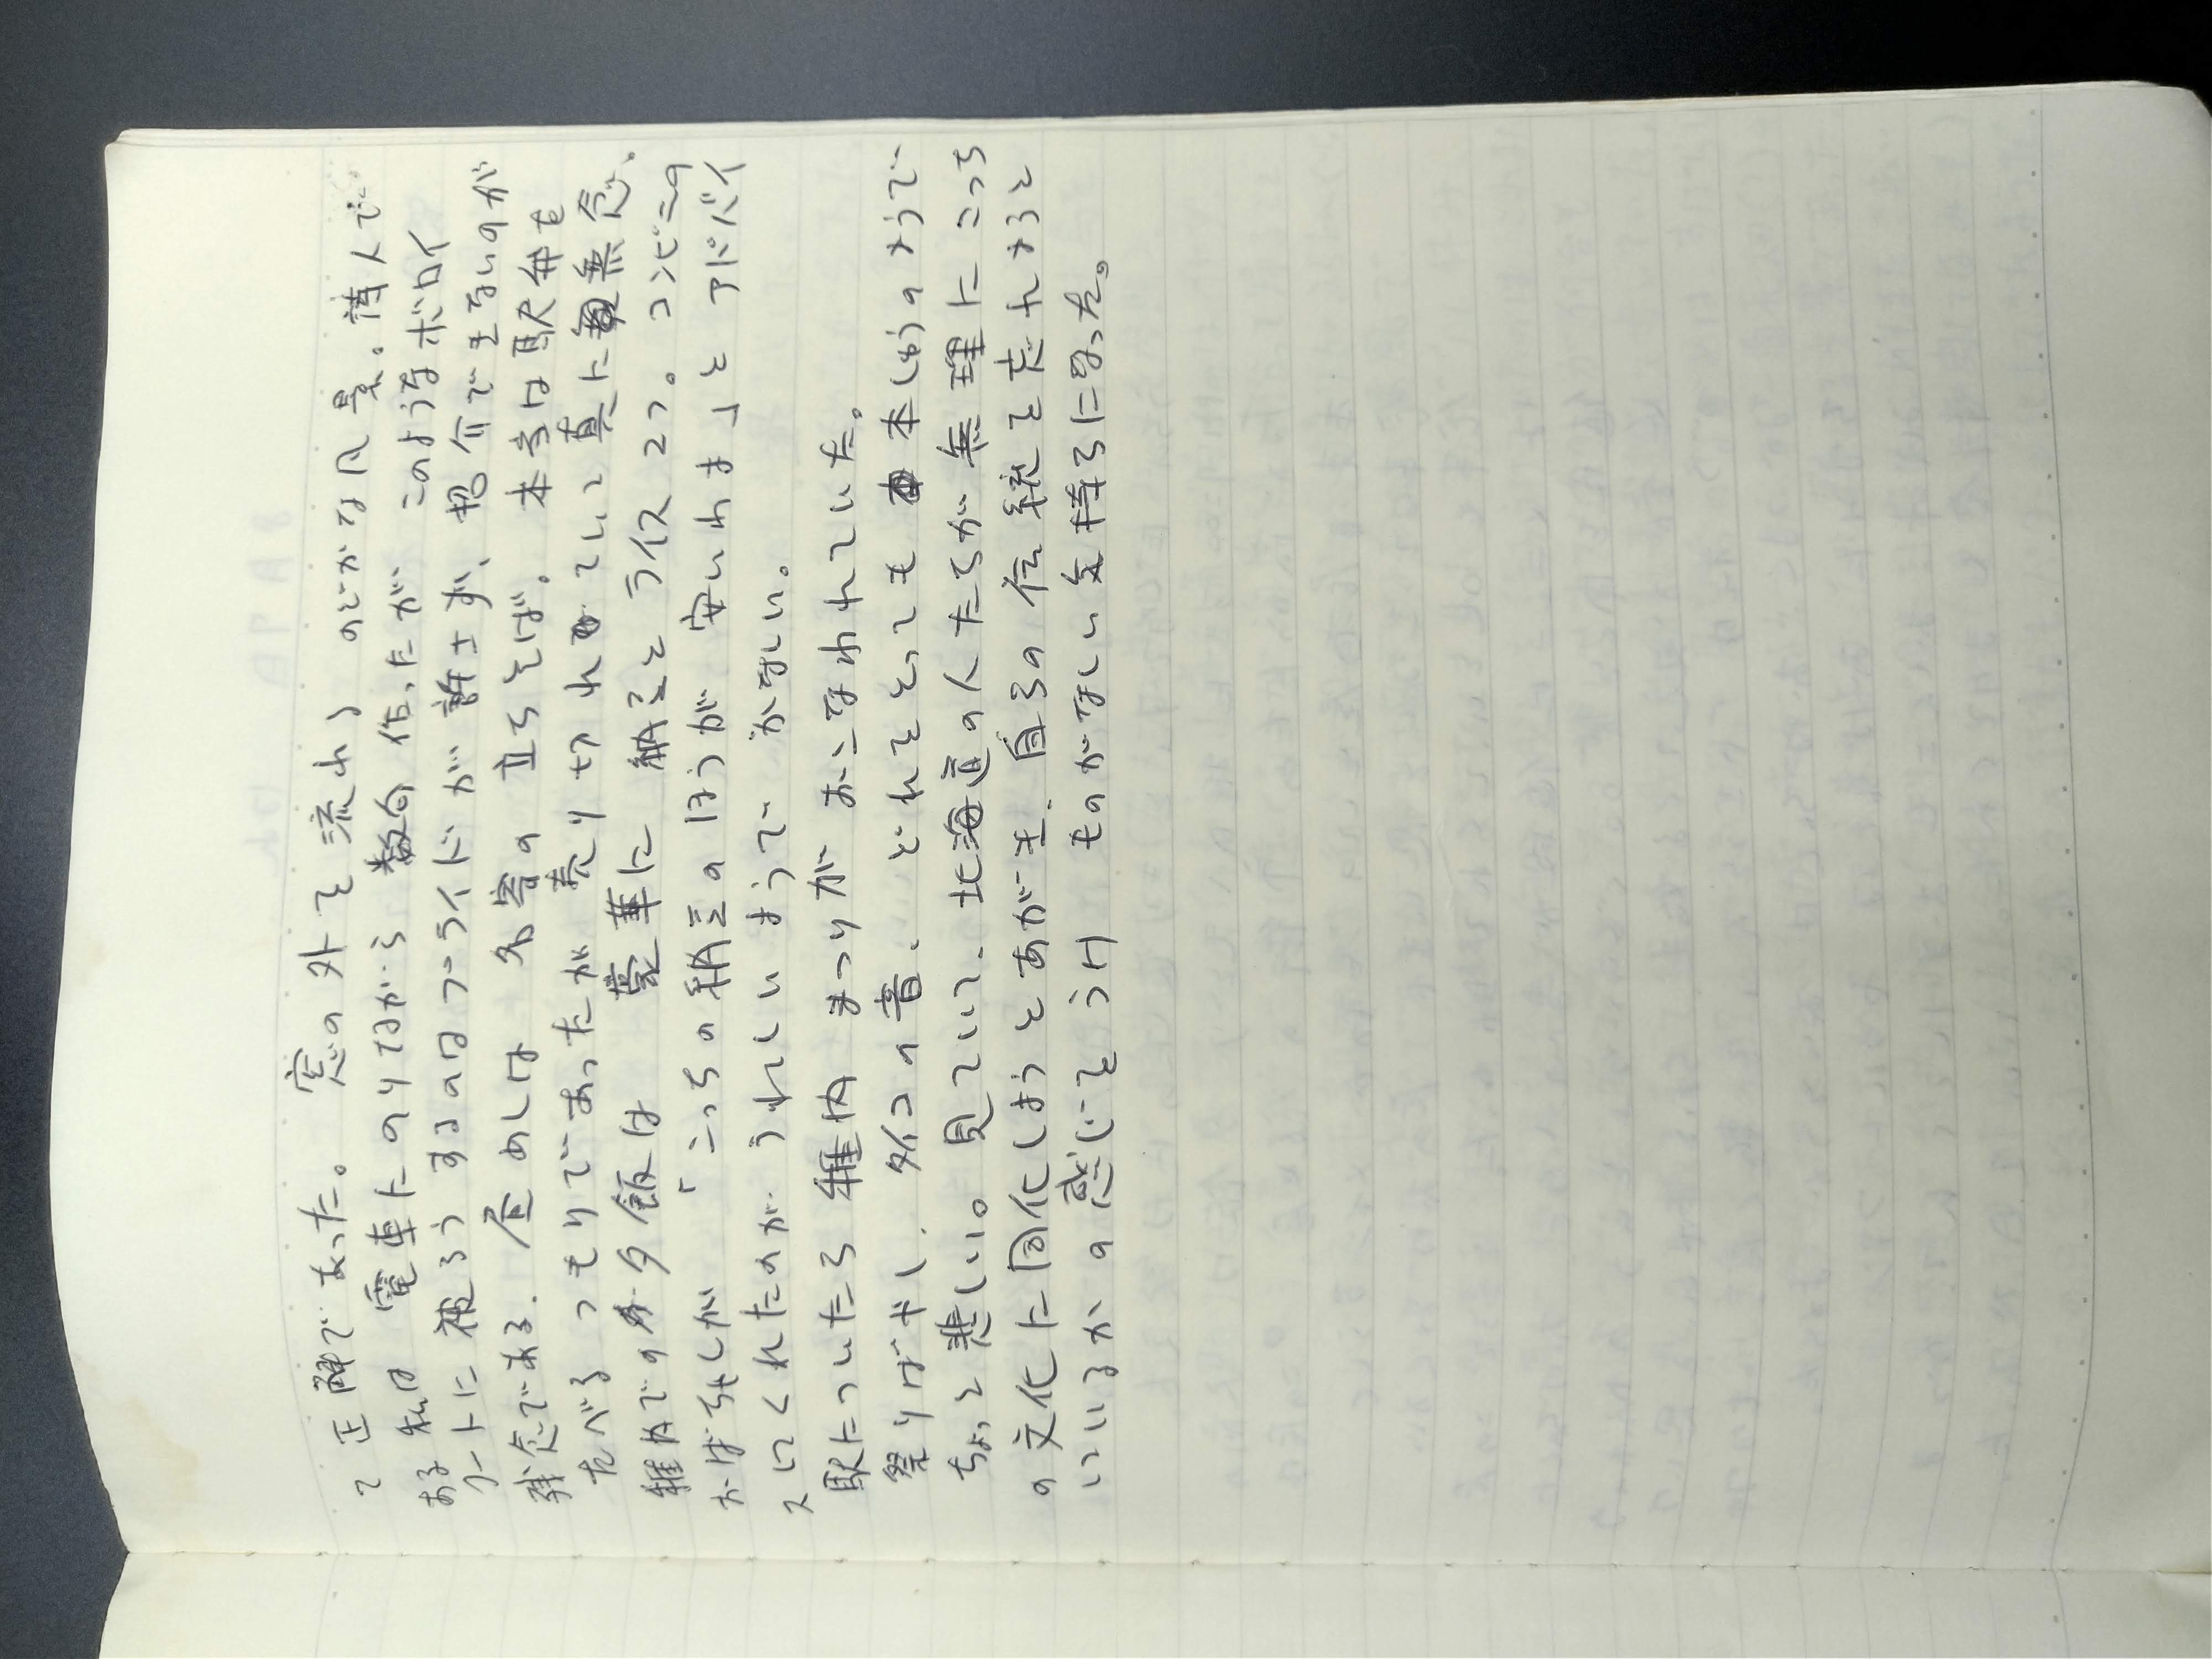 て正解であった。窓の外を流れる のどかな風景。詩人で
ある私は 電車にのりながら 数句作ったが このようなボロイ
ノートに被ろうするのはプライドが許さず、紹介できないのが
残念である。昼めしは 名寄の 立ちそば。本当は駅弁を
たべるつもりであったが 売り切れていて真に無念。
稚内での夕飯は 豪華に 納豆とライス2つ。コンビニの
おばちゃんが 「こっちの納豆のほうが 安いわよ」と アドバイ
スしてくれたのが うれしいようで かなしい。
駅についたら 稚内まつりが おこなわれていた。
祭りばやし、タイコの音、どれをとっても 本しゅうのようで
ちょっと悲しい。見ていて、北海道の人たちが 無理にこっち
の文化に同化しようとあがき、自らの伝統を忘れようと
いているかの感じをうけ ものがなしい気持ちになった。